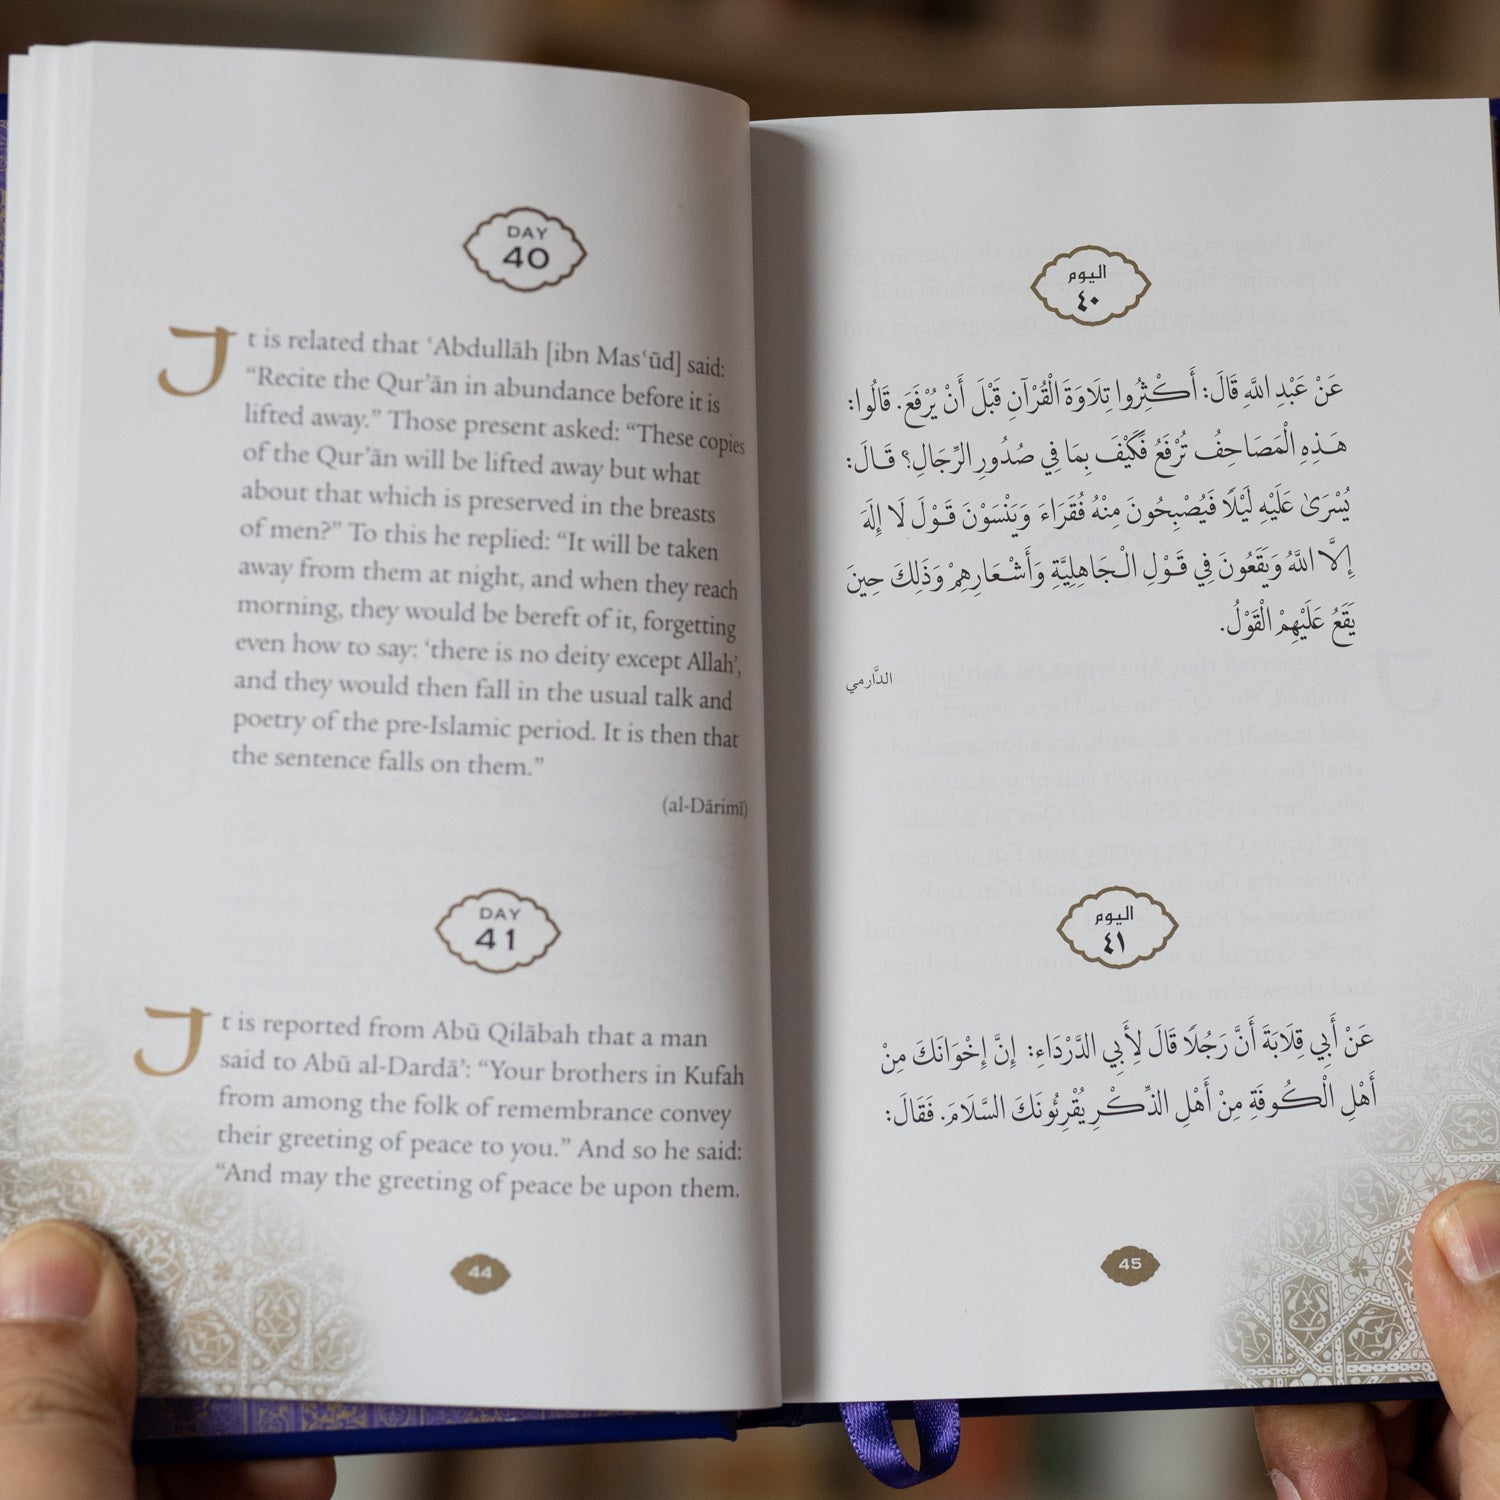 DAY
40
It is related that ‘Abdullāh [ibn Mas‘ūd] said:
“Recite the Qur’ān in abundance before it is
lifted away.” Those present asked: “These copies
of the Qur’ān will be lifted away but what
about that which is preserved in the breasts
of men?” To this he replied: “It will be taken
away from them at night, and when they reach
morning, they would be bereft of it, forgetting
even how to say: ‘there is no deity except Allah’,
and they would then fall in the usual talk and
poetry of the pre-Islamic period. It is then that
the sentence falls on them.”
(al-Dārimī)
DAY
41
It is reported from Abū Qilābah that a man
said to Abū al-Dardā’: “Your brothers in Kufah
from among the folk of remembrance convey
their greeting of peace to you.” And so he said:
“And may the greeting of peace be upon them.
44
اليوم
٤٠
عَنْ عَبْدِ اللَّهِ قَالَ: أَكْثِرُوا تِلَاوَةَ الْقُرْآنِ قَبْلَ أَنْ يُرْفَعَ. قَالُوا:
هَذِهِ الْمَصَاحِفُ تُرْفَعُ فَكَيْفَ بِمَا فِي صُدُورِ الرِّجَالِ؟ قَالَ:
يُسْرَىٰ عَلَيْهِ لَيْلًا فَيُصْبِحُونَ مِنْهُ فُقَرَاءَ وَيَنْسَوْنَ قَوْلَ لَا إِلَهَ
إِلَّا اللَّهُ وَيَقَعُونَ فِي قَوْلِ الْجَاهِلِيَّةِ وَأَشْعَارِهِمْ وَذَلِكَ حِينَ
يَقَعُ عَلَيْهِمْ الْقَوْلُ.
الدَّارمي
اليوم
٤١
عَنْ أَبِي قِلَابَةَ أَنَّ رَجُلًا قَالَ لِأَبِي الدَّرْدَاءِ: إِنَّ إِخْوَانَكَ مِنْ
أَهْلِ الْكُوفَةِ مِنْ أَهْلِ الذِّكْرِ يُقْرِئُونَكَ السَّلَامَ. فَقَالَ:
45